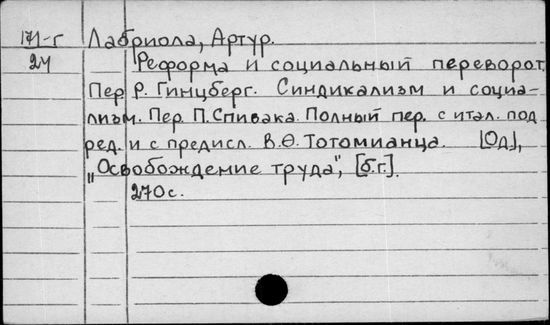 171-г Лабриола, Артур.
24 Реформа и социальный переворот.
Пер. Р. Гинцберг. Синдикализм и социа-
лизм. Пер. П. Спивака. Полный пер. с итал. под
ред. и с предисл. В.Ѳ. Тотомианца. [Од],
„Освобождение труда", [б.г.].
270 с.